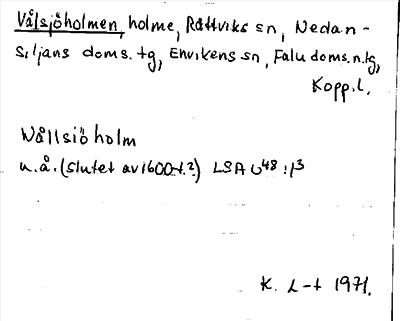 Vålsjöholmen, holme, Rättviks sn, Nedan-
siljans doms. tg, Envikens sn, Falu doms.n.tg,
Kopp.l.
Wållsiöholm
u.å. (slutet av 1600-t.?) LSA U48:13
K. L-t 1971.